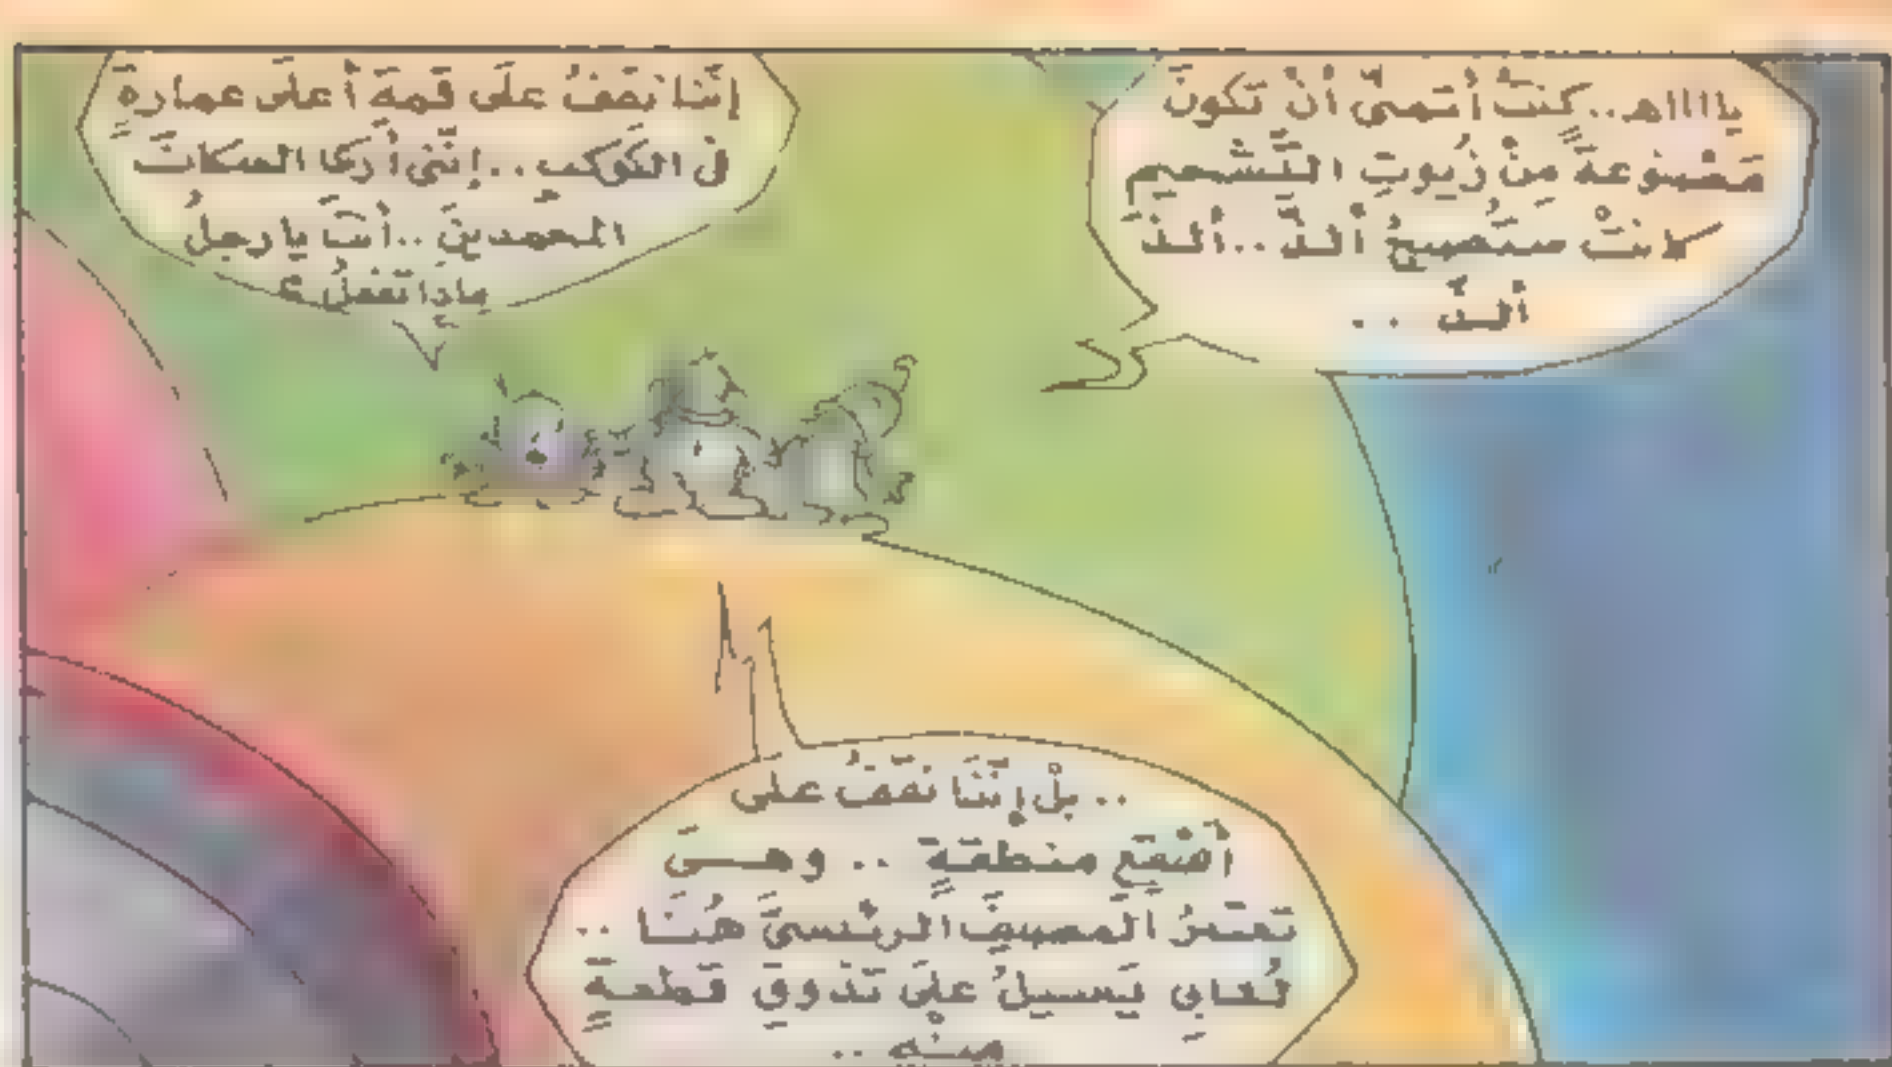 يااااه.. كنتُ أتمنّى أنْ تكونَ
مَصْنوعةً مِنْ زُيوتِ التَّشحيمِ
كانتْ ستُصبِحُ ألذَّ.. ألذَّ
ألذَّ ..
إنَّنا نقفُ علَى قمةِ أعلَى عمارةٍ
في الكَوكبِ.. إنَّني أرَى السكانَ
.. أنتَ يا رجلُ
ماذا تفعلُ ؟
.. بلْ إنَّنا نقفُ على
منطقةٍ .. وهـيَ
تعتبرُ المصيفَ الرئيسيَّ هُنَا ..
لُعابي يَسيلُ علَى تذوقِ قطعةٍ
منْهِ ..